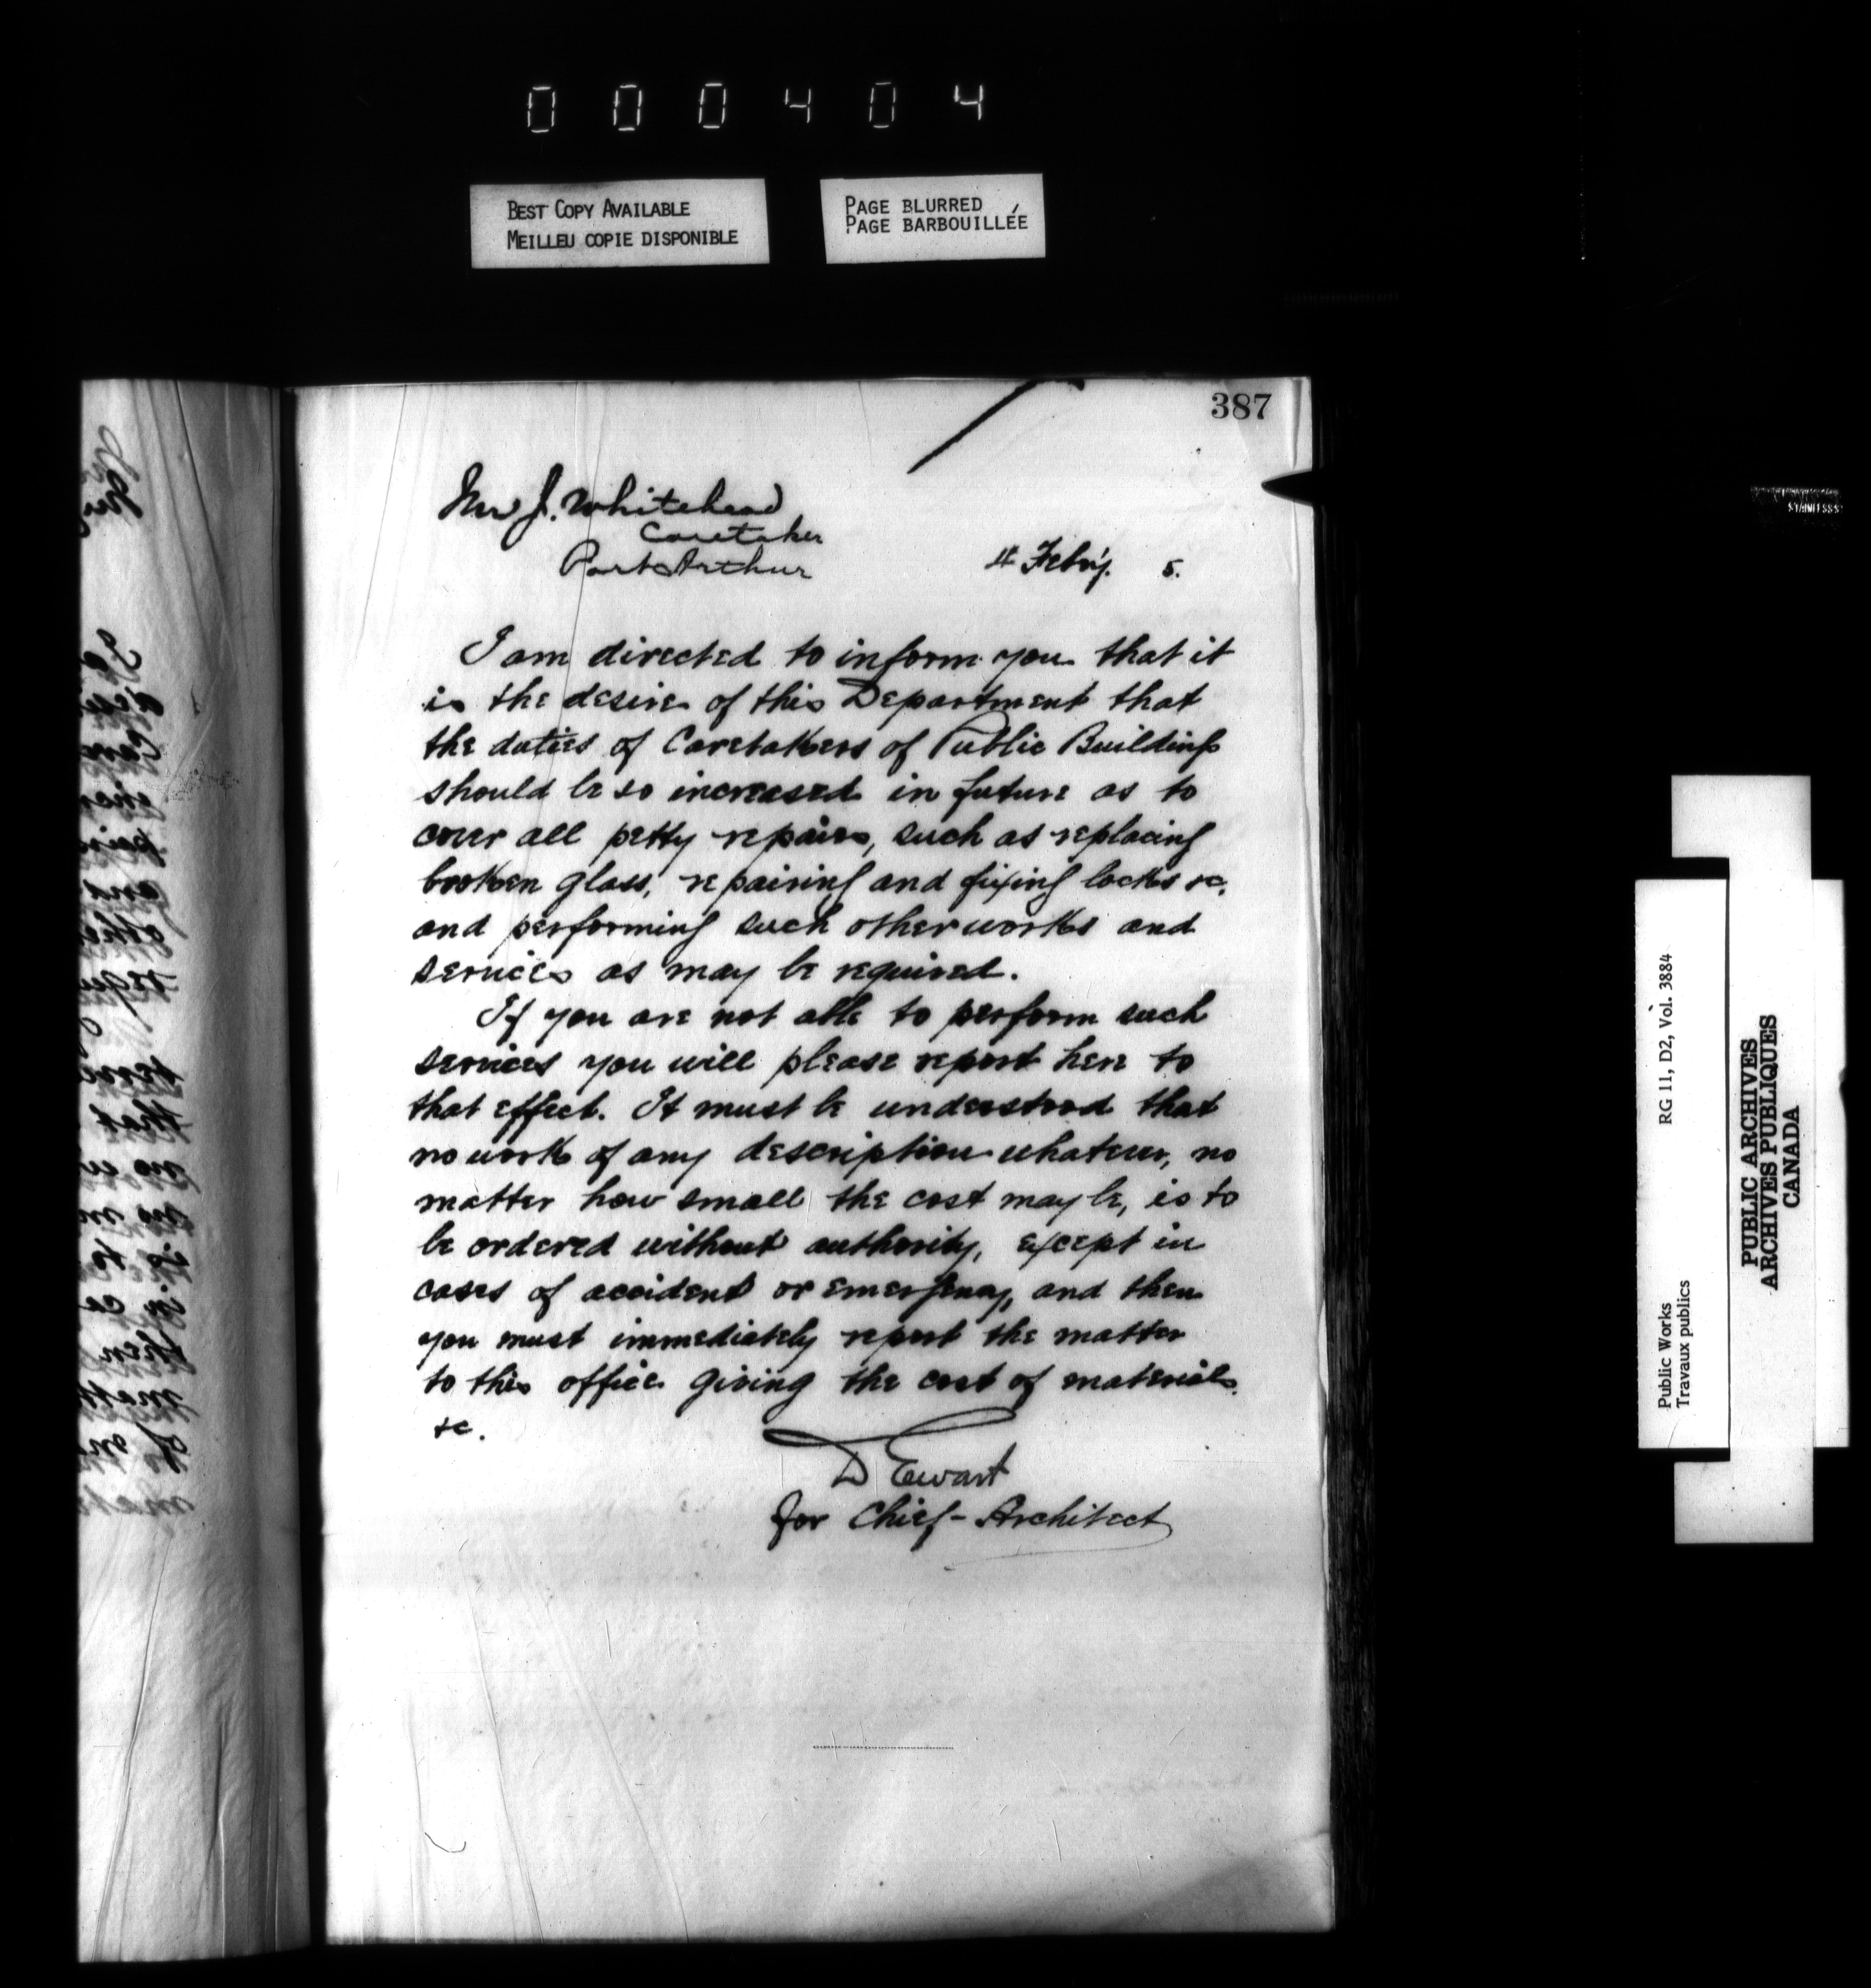 000404
BEST COPY AVAILABLE
MEILLEU COPIE DISPONIBLE
PAGE BLURRED
PAGE BARBOUILLÉE
387
Mr J. Whitehead
Caretaker
Port Arthur
4 Feb'y. 5.
I am directed to inform you that it
is the desire of this Department that
the duties of Caretakers of Public Buildings
should be so increased in future as to
cover all petty repairs, such as replacing
broken glass, repairing and fixing locks &c.
and performing such other works and
services as may be required.
If you are not able to perform such
services you will please report here to
that effect. It must be understood that
no work of any description whatever, no
matter how small the cost may be, is to
be ordered without authority, except in
cases of accident or emergency, and then
you must immediately report the matter
to this office giving the cost of materials
&c.
D Ewart
for Chief-Architect
Public Works
Travaux publics
RG 11, D2, Vol. 3884
PUBLIC ARCHIVES
ARCHIVES PUBLIQUES
CANADA